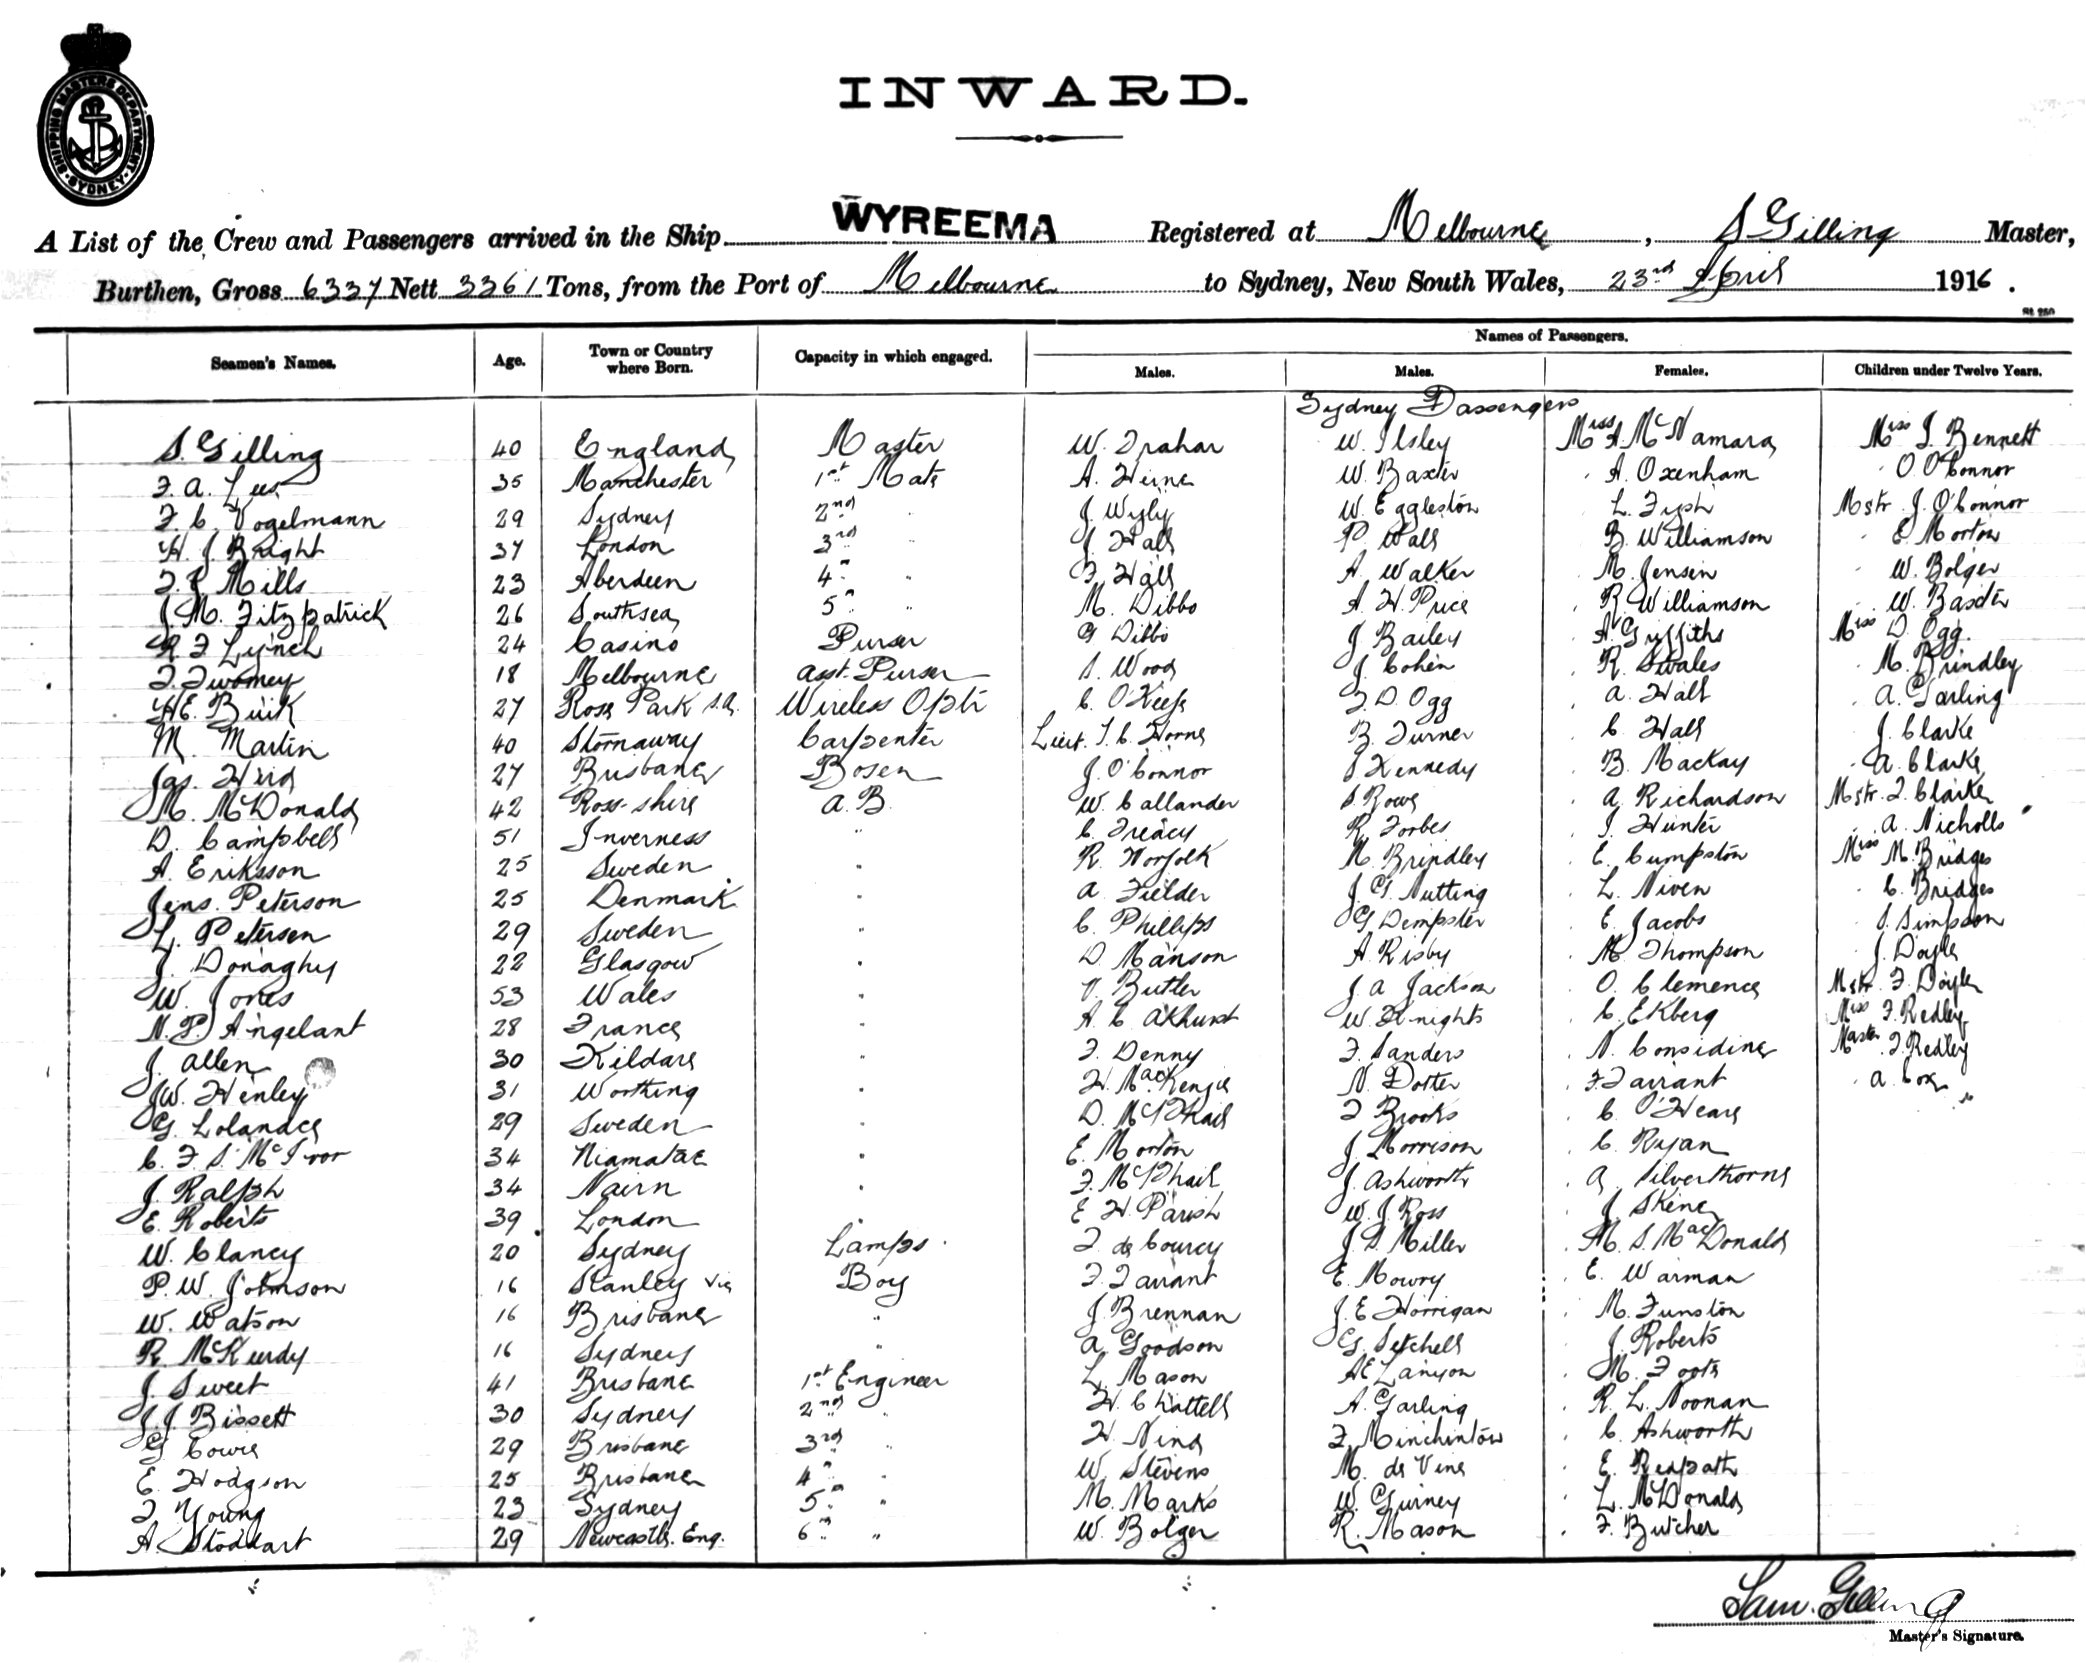 SHIPPING MASTERS DEPARTMENT SYDNEY
INWARD.
A List of the Crew and Passengers arrived in the Ship WYREEMA Registered at Melbourne, S Gilling Master,
Burthen, Gross 6337 Nett 3361 Tons, from the Port of Melbourne to Sydney, New South Wales, 23rd April 1916.
Names of Passengers.
Seamen's Names. Age. Town or Country where Born. Capacity in which engaged. Males. Males. Females. Children under Twelve Years.
Sydney Passengers
S. Gilling 40 England Master W. Trahar W. Ilsley Miss A McNamara Miss J. Bennett
F. A. Lee 35 Manchester 1st Mate A. Heine W. Baxter A. Oxenham O. O'Connor
F. C. Vogelmann 29 Sydney 2nd " J. Wyly W. Eggleston L. Fysh Mstr J. O'Connor
H. J. Bright 37 London 3rd " J. Hall P Wall B. Williamson E. Morton
Mills 23 Aberdeen 4th " F. Hall A. Walker M. Jensen W. Bolger
J. M. Fitzpatrick 26 Southsea 5th " M. Dibbs A. H. Price R. Williamson W. Baxter
R F Lynch 24 Casino Purser G Dibbs J. Bailey A. Griffiths Miss D. Ogg.
T. Twomey 18 Melbourne Asst. Purser S. Wood J. Cohen R. Swales M. Brindley
H.E. Buik 27 Rose Park S.A. Wireless Optr C. O'Keefe F. D. Ogg A. Hall A. Garling
M. Martin 40 Stornaway Carpenter Lieut. T. C. Horne B. Turner C. Hall J. Clarke
Jas. Heid 27 Brisbane Bosen J. O'Connor J Kennedy B. Mackay A. Clarke
M. McDonald 42 Ross-shire A.B. W. Callander S. Rowe A. Richardson Mstr. F. Clarke
D. Campbell 51 Inverness " C. Treacy R. Forbes J. Hunter A. Nicholls
A. Eriksson 25 Sweden " R. Norfolk M. Brindley E. Cumpston Miss M. Bridges
Jens. Peterson 25 Denmark " A. Fielder J. G. Nutting L. Niven C. Bridges
L. Petersen 29 Sweden " C. Phillips G Dempster E. Jacobs S. Simpson
J. Donaghy 22 Glasgow " D. Manson A. Risby M Thompson J. Doyle
W. Jones 53 Wales " V. Butler J. A Jackson O. Clemence Mstr. F. Doyle
N. P. Angelant 28 France " A. C Akhurst W. Knights C. Ekberg Miss F. Redley
J. Allen 30 Kildare " F. Denny F. Sanders N. Considine Master F. Redley
W. Henley 31 Worthing " H. MacKenzie N. Dotter F. Tarrant A. Cox
G. Lolander 29 Sweden " D. McPhail F Brooks C. O'Heare
C. F. S. McIvor 34 " E. Morton J. Morrison C. Ryan
J. Ralph 34 Nairn " F. McPhail J. Ashworth A. Silverthorne
E. Roberts 39 London " E H. Parish W. J. Ross J Skene
W. Clancy 20 Sydney Lamps. F. de Courcy J. S. Miller M. S. MacDonald
P. W. Johnson 16 Stanley Vic Boy F. Tarrant E. Mowry E. Warman
W. Watson 16 Brisbane " J. Brennan J. E Horrigan M. Funston
R. McKurdy 16 Sydney " A Goodson G Setchell J. Roberts
J. Sweet 41 Brisbane 1st Engineer L. Mason A E Lanyon M. Foote
J. J. Bissett 30 Sydney 2nd " H. Chattell A. Garling R. L. Noonan
G Cowie 29 Brisbane 3rd " H. Nind F. Minchinton C. Ashworth
E. Hodgson 25 Brisbane 4th " W. Stevens M. de Vine E. Redpath
J Young 23 Sydney 5th " M. Marks W. Gurney L. McDonald
A. Stoddart 29 Newcastle. Eng. 6th " W. Bolger R. Mason F. Butcher
Sam. Gilling
Master's Signature.